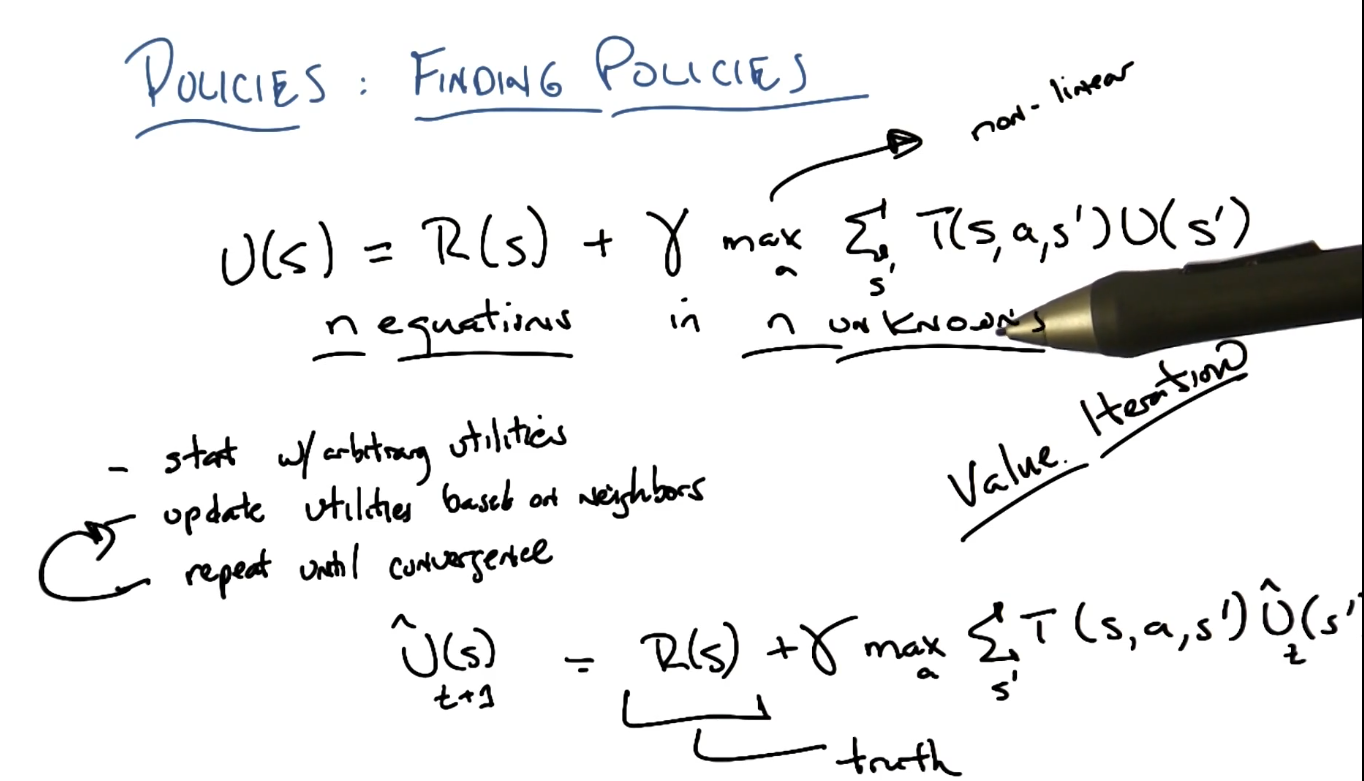 POLICIES : FINDING POLICIES
non-linear
U(s) = R(s) + γ max_a Σ_s' T(s,a,s')U(s')
n equations in n unknowns
Value Iteration
- start w/ arbitrary utilities
- update utilities based on neighbors
- repeat until convergence
Û_t+1(s) = R(s) + γ max_a Σ_s' T(s,a,s') Û_t(s'
truth